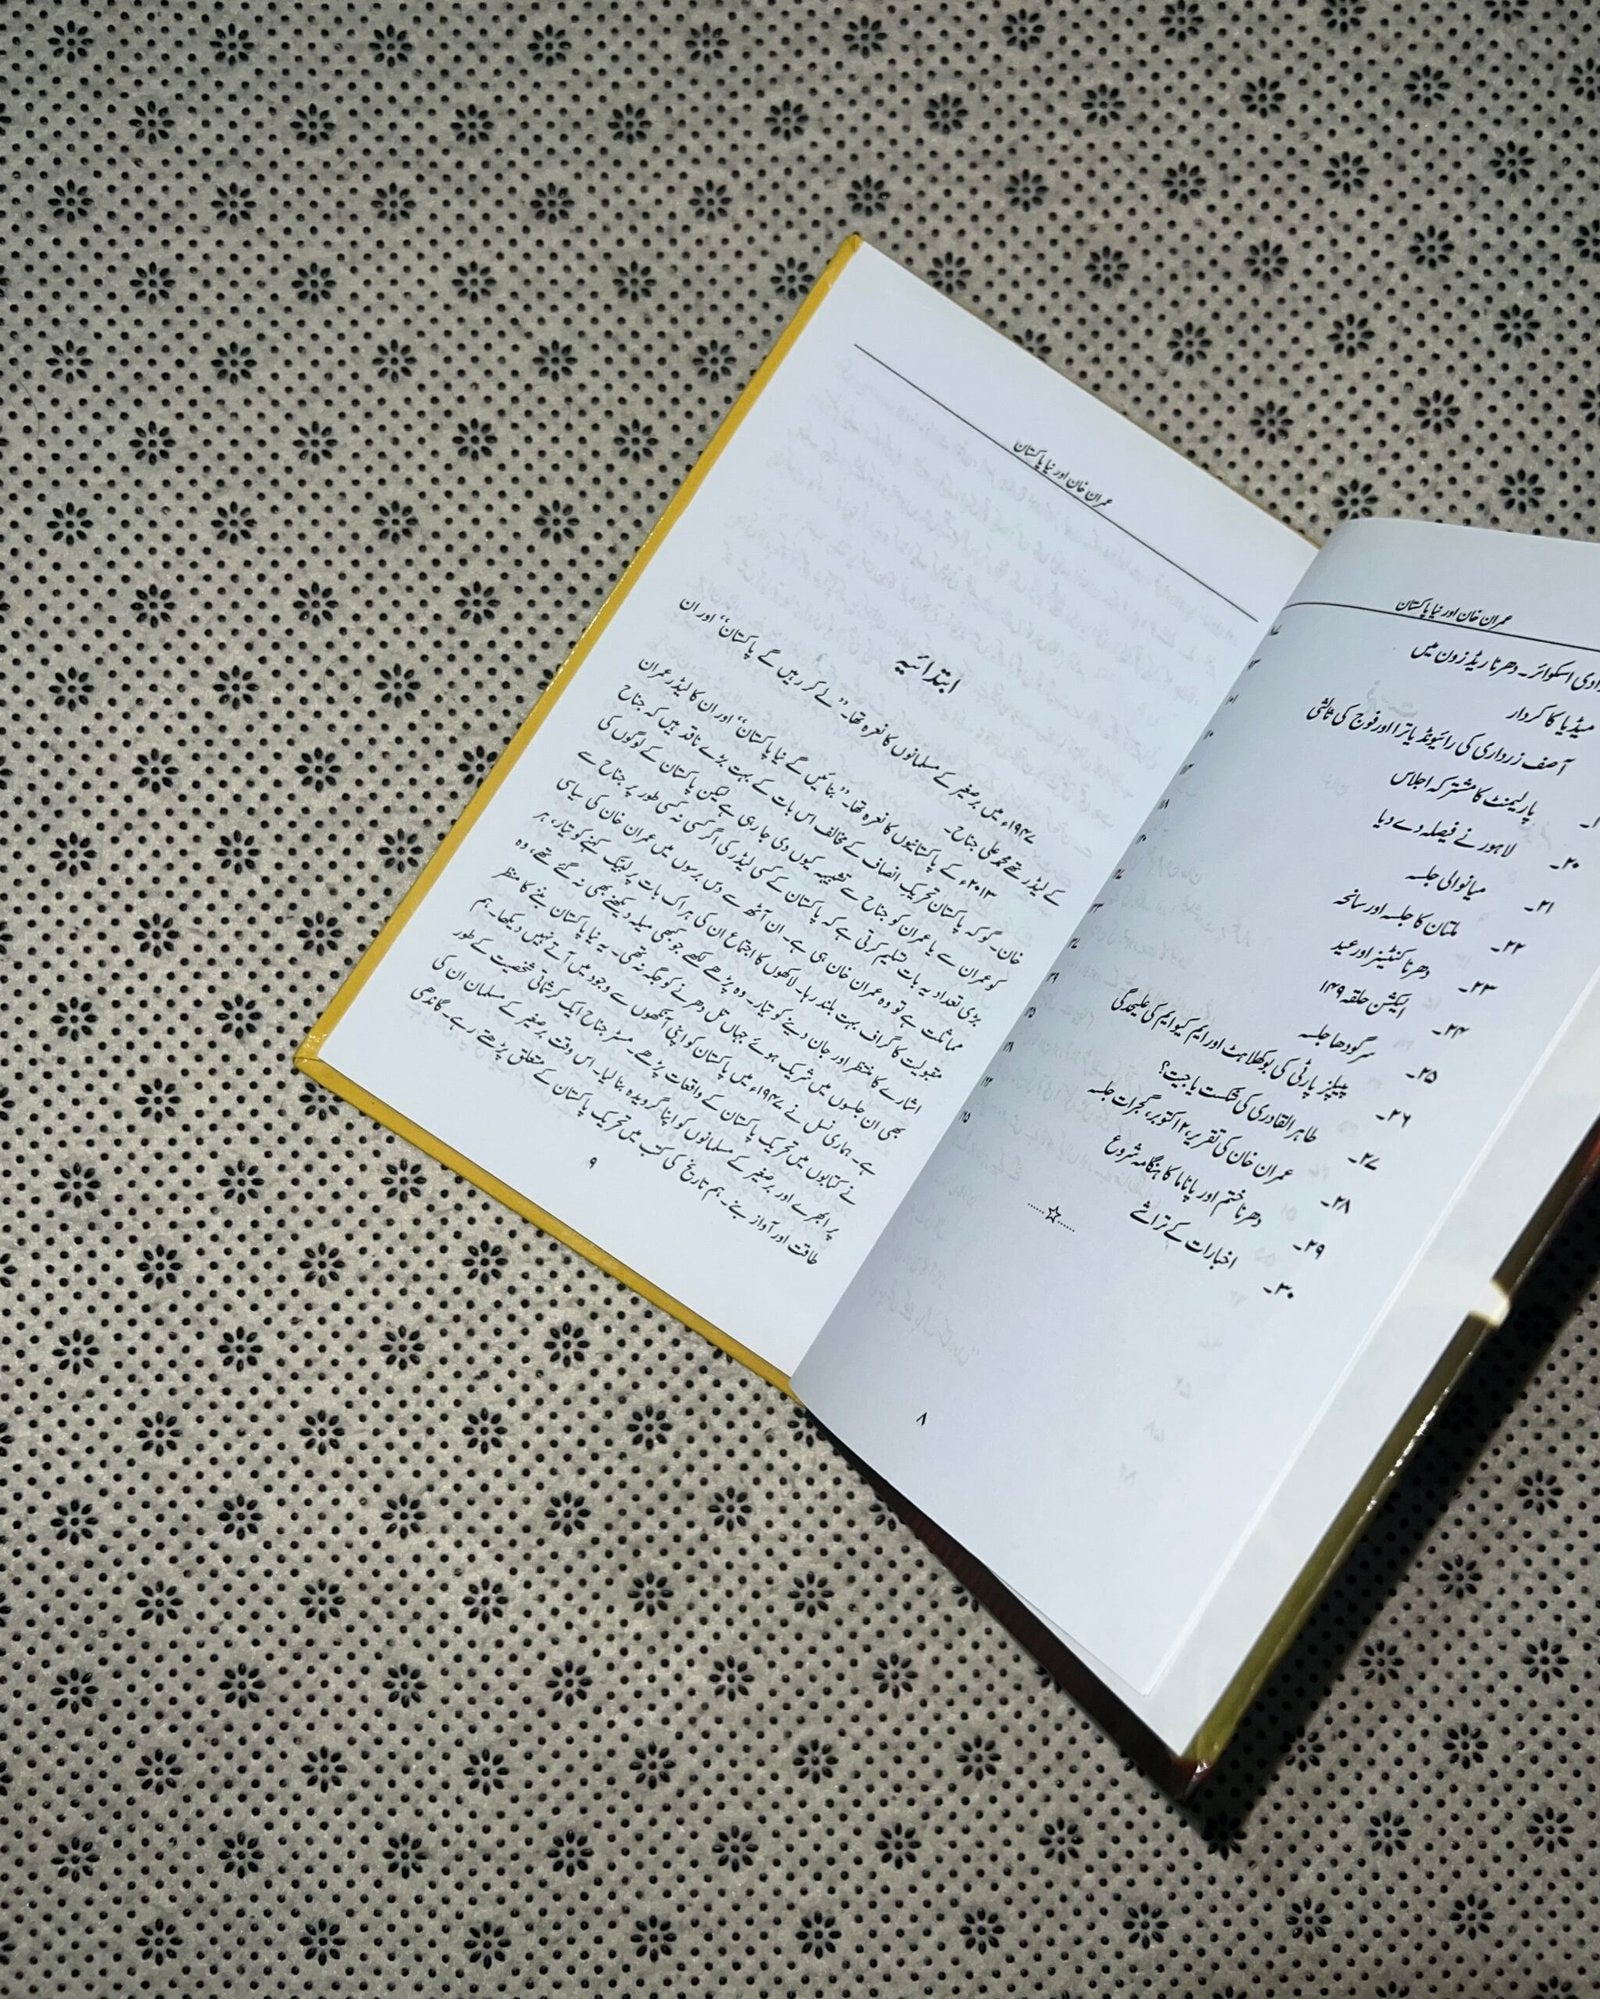 عمران خان اور نیا پاکستان
دھرنا ریڈ زون میں
میڈیا کا کردار
آصف زرداری کی رائیونڈ یاترا اور فوج کی ثالثی
پارلیمنٹ کا مشترکہ اجلاس
۲۰۔ لاہور نے فیصلہ دے دیا
۲۱۔ میانوالی جلسہ
۲۲۔ ملتان کا جلسہ اور سانحہ
۲۳۔ دھرنا کنٹینر اور عید
۲۴۔ الیکشن حلقہ ۱۴۹
۲۵۔ سرگودھا جلسہ
۲۶۔ پیپلز پارٹی کی بوکھلاہٹ اور ایم کیو ایم کی علیحدگی
۲۷۔ طاہر القادری کی شکست یا جیت؟
۲۸۔ عمران خان کی تقریر، ۲ اکتوبر، گجرات جلسہ
۲۹۔ دھرنا ختم اور پاناما کا ہنگامہ شروع
۳۰۔ اخبارات کے تراشے
۸
عمران خان اور نیا پاکستان
ابتدائیہ
۱۹۴۷ء میں برصغیر کے مسلمانوں کا نعرہ تھا۔ ’’لے کر رہیں گے پاکستان‘‘ اور ان
کے لیڈر تھے محمد علی جناح۔
۲۰۱۳ء کے پاکستانیوں کا نعرہ تھا۔ ’’بنائیں گے نیا پاکستان‘‘ اور ان کا لیڈر عمران
خان۔ گو کہ پاکستان تحریک انصاف کے مخالف اس بات کے بہت بڑے ناقد ہیں کہ جناح
کو عمران سے یا عمران کو جناح سے تشبیہ کیوں دی جا رہی ہے لیکن پاکستان کے لوگوں کی
بڑی تعداد یہ بات تسلیم کرتی ہے کہ پاکستان کے کسی لیڈر کی اگر کسی نہ کسی طور پر جناح سے
مماثلت ہے تو وہ عمران خان ہی ہے۔ ان آٹھ سے دس برسوں میں عمران خان کی سیاسی
مقبولیت کا گراف بہت بلند رہا۔ لاکھوں کا اجتماع ان کی ہر اک بات پر لبیک کہنے کو تیار، ہر
اشارے کا منتظر اور جان دینے کو تیار۔ وہ پڑھے لکھے جو کبھی میلہ دیکھنے بھی نہ گئے تھے، وہ
بھی ان جلسوں میں شریک ہوئے جہاں تل دھرنے کو جگہ نہ تھی۔ یہ نیا پاکستان بننے کا منظر
ہے۔ ہماری نسل نے ۱۹۴۷ء میں پاکستان کو اپنی آنکھوں سے وجود میں آتے نہیں دیکھا۔ ہم
نے کتابوں میں تحریک پاکستان کے واقعات پڑھے۔ مسٹر جناح ایک کرشماتی شخصیت کے طور
پر ابھرے اور برصغیر کے مسلمانوں کو اپنا گرویدہ بنا لیا۔ اس وقت برصغیر کے مسلمان ان کی
طاقت اور آواز بنے۔ ہم تاریخ کی کتب میں تحریک پاکستان کے متعلق پڑھتے رہے۔ گاندھی
۹